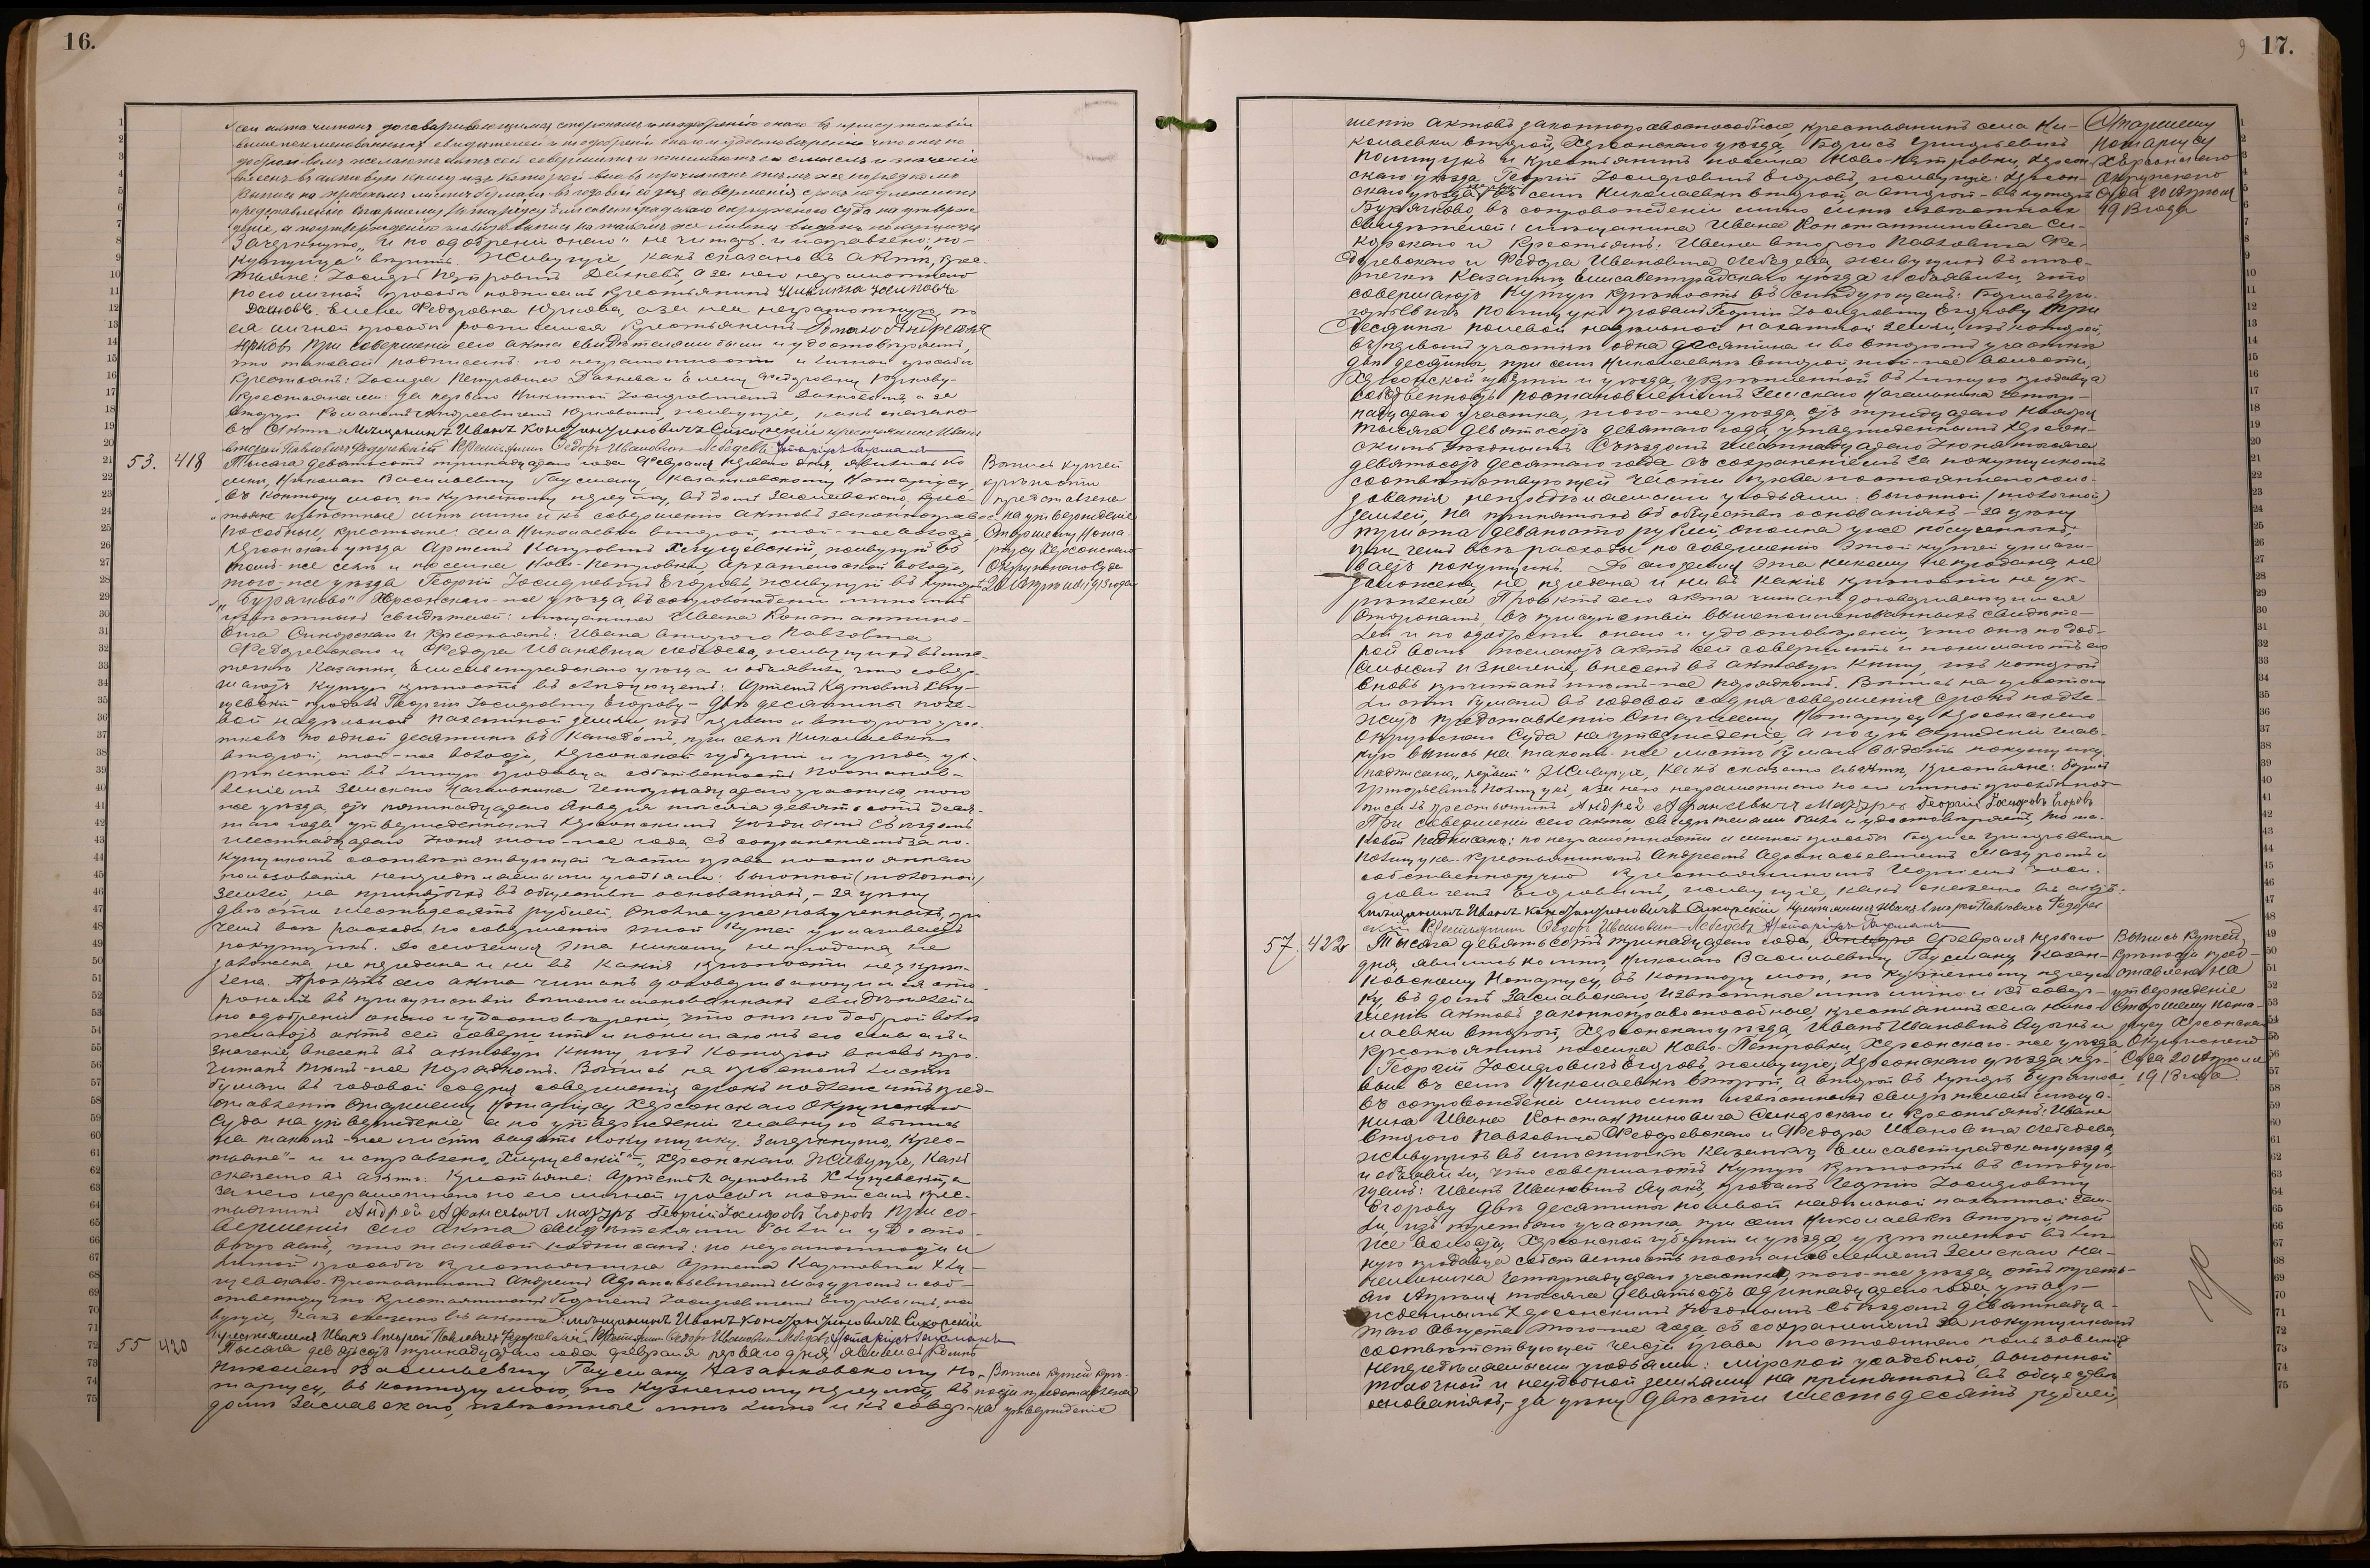 16.
сего акта читанъ договаривающимся сторонамъ и по одобреніи онаго въ присутствіи
вышепоименованныхъ свидѣтелей и по одобреніи онаго и удостовѣреніи что они по
доброй волѣ желаютъ актъ сей совершить и понимаютъ его смыслъ и значеніе
внесенъ въ актовую книгу изъ которой вновь прочитанъ тѣмъ же порядкомъ
Выпись на простомъ листѣ бумаги въ годовой со дня совершенія срокъ подлежитъ
представленію Старшему Нотаріусу Елисаветградскаго окружнаго суда на утверж-
деніе, а по утвержденіи главную выпись на такомъ же листѣ выдать покупщицѣ
Зачеркнуто „и по одобреніи онаго" не читать. и исправлено: „по-
купщица" вѣрить. Живущіе, какъ сказано въ актѣ, крес-
тьяне: Іосифъ Петровичъ Дахневъ, а за него неграмотнаго
по его личной просьбѣ подписалъ крестьянинъ Никита Іосиповъ
Дахновъ. Елена Федоровна Юркова, а за нея неграмотную, по
ея личной просьбѣ росписался крестьянинъ Романъ Андреевъ
Юрковъ При совершеніи сего акта свидѣтелями были и удостовѣряемъ,
что таковой подписанъ: по неграмотности и личной просьбѣ
крестьянъ: Іосифа Петровича Дахнева и Елены Федоровны Юрковой-
крестьянами: за перваго Никитой Іосифовичемъ Дахновымъ, а за
вторую Романомъ Андреевичемъ Юрковымъ, живущіе, какъ сказано
въ актѣ. Мѣщанинъ Иванъ Константиновичъ Сикорскій крестьянинъ Иванъ
второй Павловичъ Федоревскій Крестьянинъ Федоръ Ивановичъ Лебедевъ Нотаріусъ Гаусманъ
53. 418 Тысяча девятьсотъ тринадцатаго года Февраля перваго дня, явились ко
мнѣ, Николаю Васильевичу Гаусману, Казанковскому Нотаріусу,
въ контору мою, по Кузнечному переулку, въ домѣ Заславскаго, крес-
тьяне извѣстные мнѣ лично и къ совершенію актовъ законноправос-
пособные, крестьяне: села Николаевки второй, той-же волости,
Херсонскаго уѣзда Артемъ Карповичъ Хлущевскій, живущій въ
томъ-же селѣ и поселка Ново-Петровки, Архангельской волости,
того-же уѣзда Георгій Іосифовичъ Егоровъ, живущій въ хуторѣ
„Бурячково" Херсонскаго-же уѣзда, въ сопровожденіи лично мнѣ
извѣстныхъ свидѣтелей: мѣщанина Ивана Константино-
вича Сикорскаго и крестьянъ: Ивана второго Павловича
Федоревскаго и Федора Ивановича Лебедева, живущихъ въ мѣс-
течкѣ Казанкѣ, Елисаветградскаго уѣзда и объявили, что совер-
шаютъ купчую крѣпость въ слѣдующемъ: Артемъ Карповичъ Хлу-
щевскій продалъ Георгію Іосифовичу Егорову - двѣ десятины поле-
вой надѣльной пахатной земли, изъ перваго и второго учас-
тковъ по одной десятинѣ въ каждомъ, при селѣ Николаевкѣ
второй, той-же волости, Херсонской губерніи и уѣзда, ук-
рѣпленной въ личную продавца собственность постанов-
леніемъ Земскаго Начальника четырнадцатаго участка, того
же уѣзда, отъ пятнадцатаго Января тысяча девятьсотъ деся-
таго года утвержденнымъ Херсонскимъ Уѣзднымъ Съѣздомъ
шестнадцатаго Іюня того-же года, съ сохраненіемъ за по-
купщикомъ соотвѣтствующей части права постояннаго
пользованія непередѣляемыми угодьями: выгонной (толочной)
землей, на принятыхъ въ обществѣ основаніяхъ, - за цѣну
двѣсти шестьдесятъ рублей, сполна уже полученныхъ, при
чемъ всѣ расходы по совершенію этой купчей уплачиваетъ
покупщикъ. До сего земля эта никому не продана, не
заложена, не передана и ни въ какія крѣпости не укрѣп-
лена. Проектъ сего акта читанъ договаривающимся сто-
ронамъ въ присутствіи вышепоименованныхъ свидѣтелей и
по одобреніи онаго и удостовѣреніи, что они по доброй волѣ
желаютъ актъ сей совершить и понимаютъ его смыслъ и
значеніе, внесенъ въ актовую книгу, изъ которой вновь про-
читанъ тѣмъ-же порядкомъ. Выпись на простомъ листѣ
бумаги въ годовой со дня совершенія срокъ подлежитъ пред-
ставленію Старшему Нотаріусу Херсонскаго Окружнаго
Суда на утвержденіе, а по утвержденіи главную выпись
на такомъ-же листѣ выдать покупщику. Зачеркнуто „крес-
тьяне"- и исправлено „Хлущевскій"-„Херсонскаго. Живущіе, какъ
сказано въ актѣ: крестьяне: Артемъ Карповичъ Хлущевскій, а
за него неграмотнаго по его личной просьбѣ подписалъ крес-
тьянинъ Андрей Афанасьевичъ Мазуръ Георгій Іосифовъ Егоровъ При со-
вершеніи сего акта свидѣтелями были и удосто-
вѣряемъ, что таковой подписанъ: по неграмотности и
личной просьбѣ крестьянина Артема Карповича Хлу-
щевскаго - крестьяниномъ Андреемъ Афанасьевичемъ Мазуромъ и соб-
ственноручно крестьяниномъ Георгіемъ Іосифовичемъ Егоровымъ, жи-
вущіе, какъ сказано въ актѣ: мѣщанинъ Иванъ Константиновичъ Сикорскій
крестьянинъ Иванъ второй Павловичъ Федоревскій, Крестьянинъ Федоръ Ивановичъ Лебедевъ Нотаріусъ Гаусманъ
55 420 Тысяча девятьсотъ тринадцатаго года февраля перваго дня, явились ко мнѣ,
Николаю Васильевичу Гаусману, Казанковскому Но-
таріусу, въ контору мою, по Кузнечному переулку, въ
домѣ Заславскаго, извѣстные мнѣ лично и къ совер-
Выпись купчей
крѣпости
представлена
на утвержденіе
Старшему Нота-
ріусу Херсонскаго
Окружнаго Суда
20 Апрѣля 1913 года
Выпись купчей крѣ-
пости представлена
на утвержденіе
17.
шенію актовъ законноправоспособные, крестьянинъ села Ни-
колаевки второй, Херсонскаго уѣзда, Борисъ Григорьевичъ
Полищукъ и крестьянинъ поселка Ново-Петровки, Херсон-
скаго уѣзда Георгій Іосифовичъ Егоровъ, живущіе: Херсон-
скаго уѣзда первый въ селѣ Николаевкѣ второй, а второй - въ хуторѣ
Бурячково, въ сопровожденіи лично мнѣ извѣстныхъ
свидѣтелей: мѣщанина Ивана Константиновича Си-
корскаго и крестьянъ: Ивана второго Павловича Фе-
доревскаго и Федора Ивановича Лебедева, живущихъ въ мѣс-
течкѣ Казанкѣ, Елисаветградскаго уѣзда и объявили, что
совершаютъ купчую крѣпость въ слѣдующемъ: Борисъ Гри-
горьевичъ Полищукъ продалъ Георгію Іосифовичу Егорову три
десятины полевой надѣльной пахатной земли, изъ которой
въ первомъ участкѣ одна десятина и во второмъ участкѣ
двѣ десятины, при селѣ Николаевкѣ второй, той-же волости,
Херсонской губерніи и уѣзда, укрѣпленной въ личную продавца
собственность постановленіемъ Земскаго Начальника четыр-
надцатаго участка, того-же уѣзда, отъ тридцатаго Ноября
тысяча девятьсотъ девятаго года, утвержденнымъ Херсон-
скимъ Уѣзднымъ Съѣздомъ шестнадцатаго Іюня тысяча
девятьсотъ десятаго года съ сохраненіемъ за покупщикомъ
соотвѣтствующей части права постояннаго поль-
зованія непередѣляемыми угодьями: выгонной (толочной)
землей, на принятыхъ въ обществѣ основаніяхъ - за цѣну
триста девяносто рублей, сполна уже полученныхъ,
при чемъ всѣ расходы по совершенію этой купчей уплачи-
ваетъ покупщикъ. До сего земля эта никому не продана, не
заложена, не передана и ни въ какія крѣпости не ук-
рѣплена. Проектъ сего акта читанъ договаривающимся
сторонамъ, въ присутствіи вышепоименованныхъ свидѣте-
лей и по одобреніи онаго и удостовѣреніи, что они по доб-
рой волѣ желаютъ актъ сей совершить и понимаютъ его
смыслъ и значеніе, внесенъ въ актовую книгу, изъ которой
вновь прочитанъ тѣмъ-же порядкомъ. Выпись на простомъ
листѣ бумаги въ годовой со дня совершенія срокъ подле-
житъ представленію Старшему Нотаріусу Херсонскаго
Окружнаго Суда на утвержденіе, а по утвержденіи глав-
ную выпись на такомъ-же листѣ бумаги выдать покупщику.
Надписано „первый" Живущіе, какъ сказано въ актѣ, крестьяне: Борисъ
Григорьевичъ Полищукъ, а за него неграмотнаго по его личной просьбѣ под-
писалъ крестьянинъ Андрей Афанасьевичъ Мазуръ Георгій Іосифовъ Егоровъ
При совершеніи сего акта свидѣтелями были и удостовѣряемъ, что та-
ковой подписанъ: по неграмотности и личной просьбѣ Бориса Григорьевича
Полищука - крестьяниномъ Андреемъ Афанасьевичемъ Мазуромъ и
собственноручно крестьяниномъ Георгіемъ Іоси-
фовичемъ Егоровымъ, живущіе, какъ сказано въ актѣ:
мѣщанинъ Иванъ Константиновичъ Сикорскій крестьянинъ Иванъ второй Павловичъ Федорев-
скій Крестьянинъ Федоръ Ивановичъ Лебедевъ Нотаріусъ Гаусманъ
57. 422 Тысяча девятьсотъ тринадцатаго года, Января Февраля перваго
дня, явились ко мнѣ, Николаю Васильевичу Гаусману, Казан-
ковскому Нотаріусу, въ контору мою, по Кузнечному переул-
ку, въ домѣ Заславскаго, извѣстные мнѣ лично и къ совер-
шенію актовъ законноправоспособные, крестьянинъ села Нико-
лаевки второй, Херсонскаго уѣзда, Иванъ Ивановичъ Яцыкъ и
крестьянинъ поселка Ново-Петровки, Херсонскаго-же уѣзда
Георгій Іосифовичъ Егоровъ, живущіе, Херсонскаго уѣзда пер-
вый въ селѣ Николаевкѣ второй, а второй въ хуторѣ Бурячково,
въ сопровожденіи лично мнѣ извѣстныхъ свидѣтелей мѣща-
нина Ивана Константиновича Сикорскаго и крестьянъ: Ивана
второго Павловича Федоревскаго и Федора Ивановича Лебедева,
живущихъ въ мѣстечкѣ Казанкѣ, Елисаветградскаго уѣзда,
и объявили, что совершаютъ купчую крѣпость въ слѣдую-
щемъ: Иванъ Ивановичъ Яцыкъ, продалъ Георгію Іосифовичу
Егорову двѣ десятины полевой надѣльной пахатной зем-
ли, изъ третьяго участка, при селѣ Николаевкѣ второй, той
же волости, Херсонской губерніи и уѣзда, укрѣпленной въ лич-
ную продавца собственность постановленіемъ Земскаго На-
чальника четырнадцатаго участка, того-же уѣзда, отъ треть-
яго Апрѣля тысяча девятьсотъ одиннадцатаго года, утвер-
жденнымъ Херсонскимъ Уѣзднымъ Съѣздомъ девятнадца-
таго Августа того-же года, съ сохраненіемъ за покупщикомъ
соотвѣтствующей части права постояннаго пользованія
непередѣляемыми угодьями: мірской усадебной, выгонной
толочной и неудобной землями на принятыхъ въ обществѣ
основаніяхъ, - за цѣну двѣсти шестьдесятъ рублей,
Старшему
Нотаріусу
Херсонскаго
Окружнаго
Суда 20 Апрѣля
1913 года
Выпись купчей
крѣпости пред-
ставлена на
утвержденіе
Старшему Нота-
ріусу Херсонскаго
Окружнаго
Суда 20 Апрѣля
1913 года